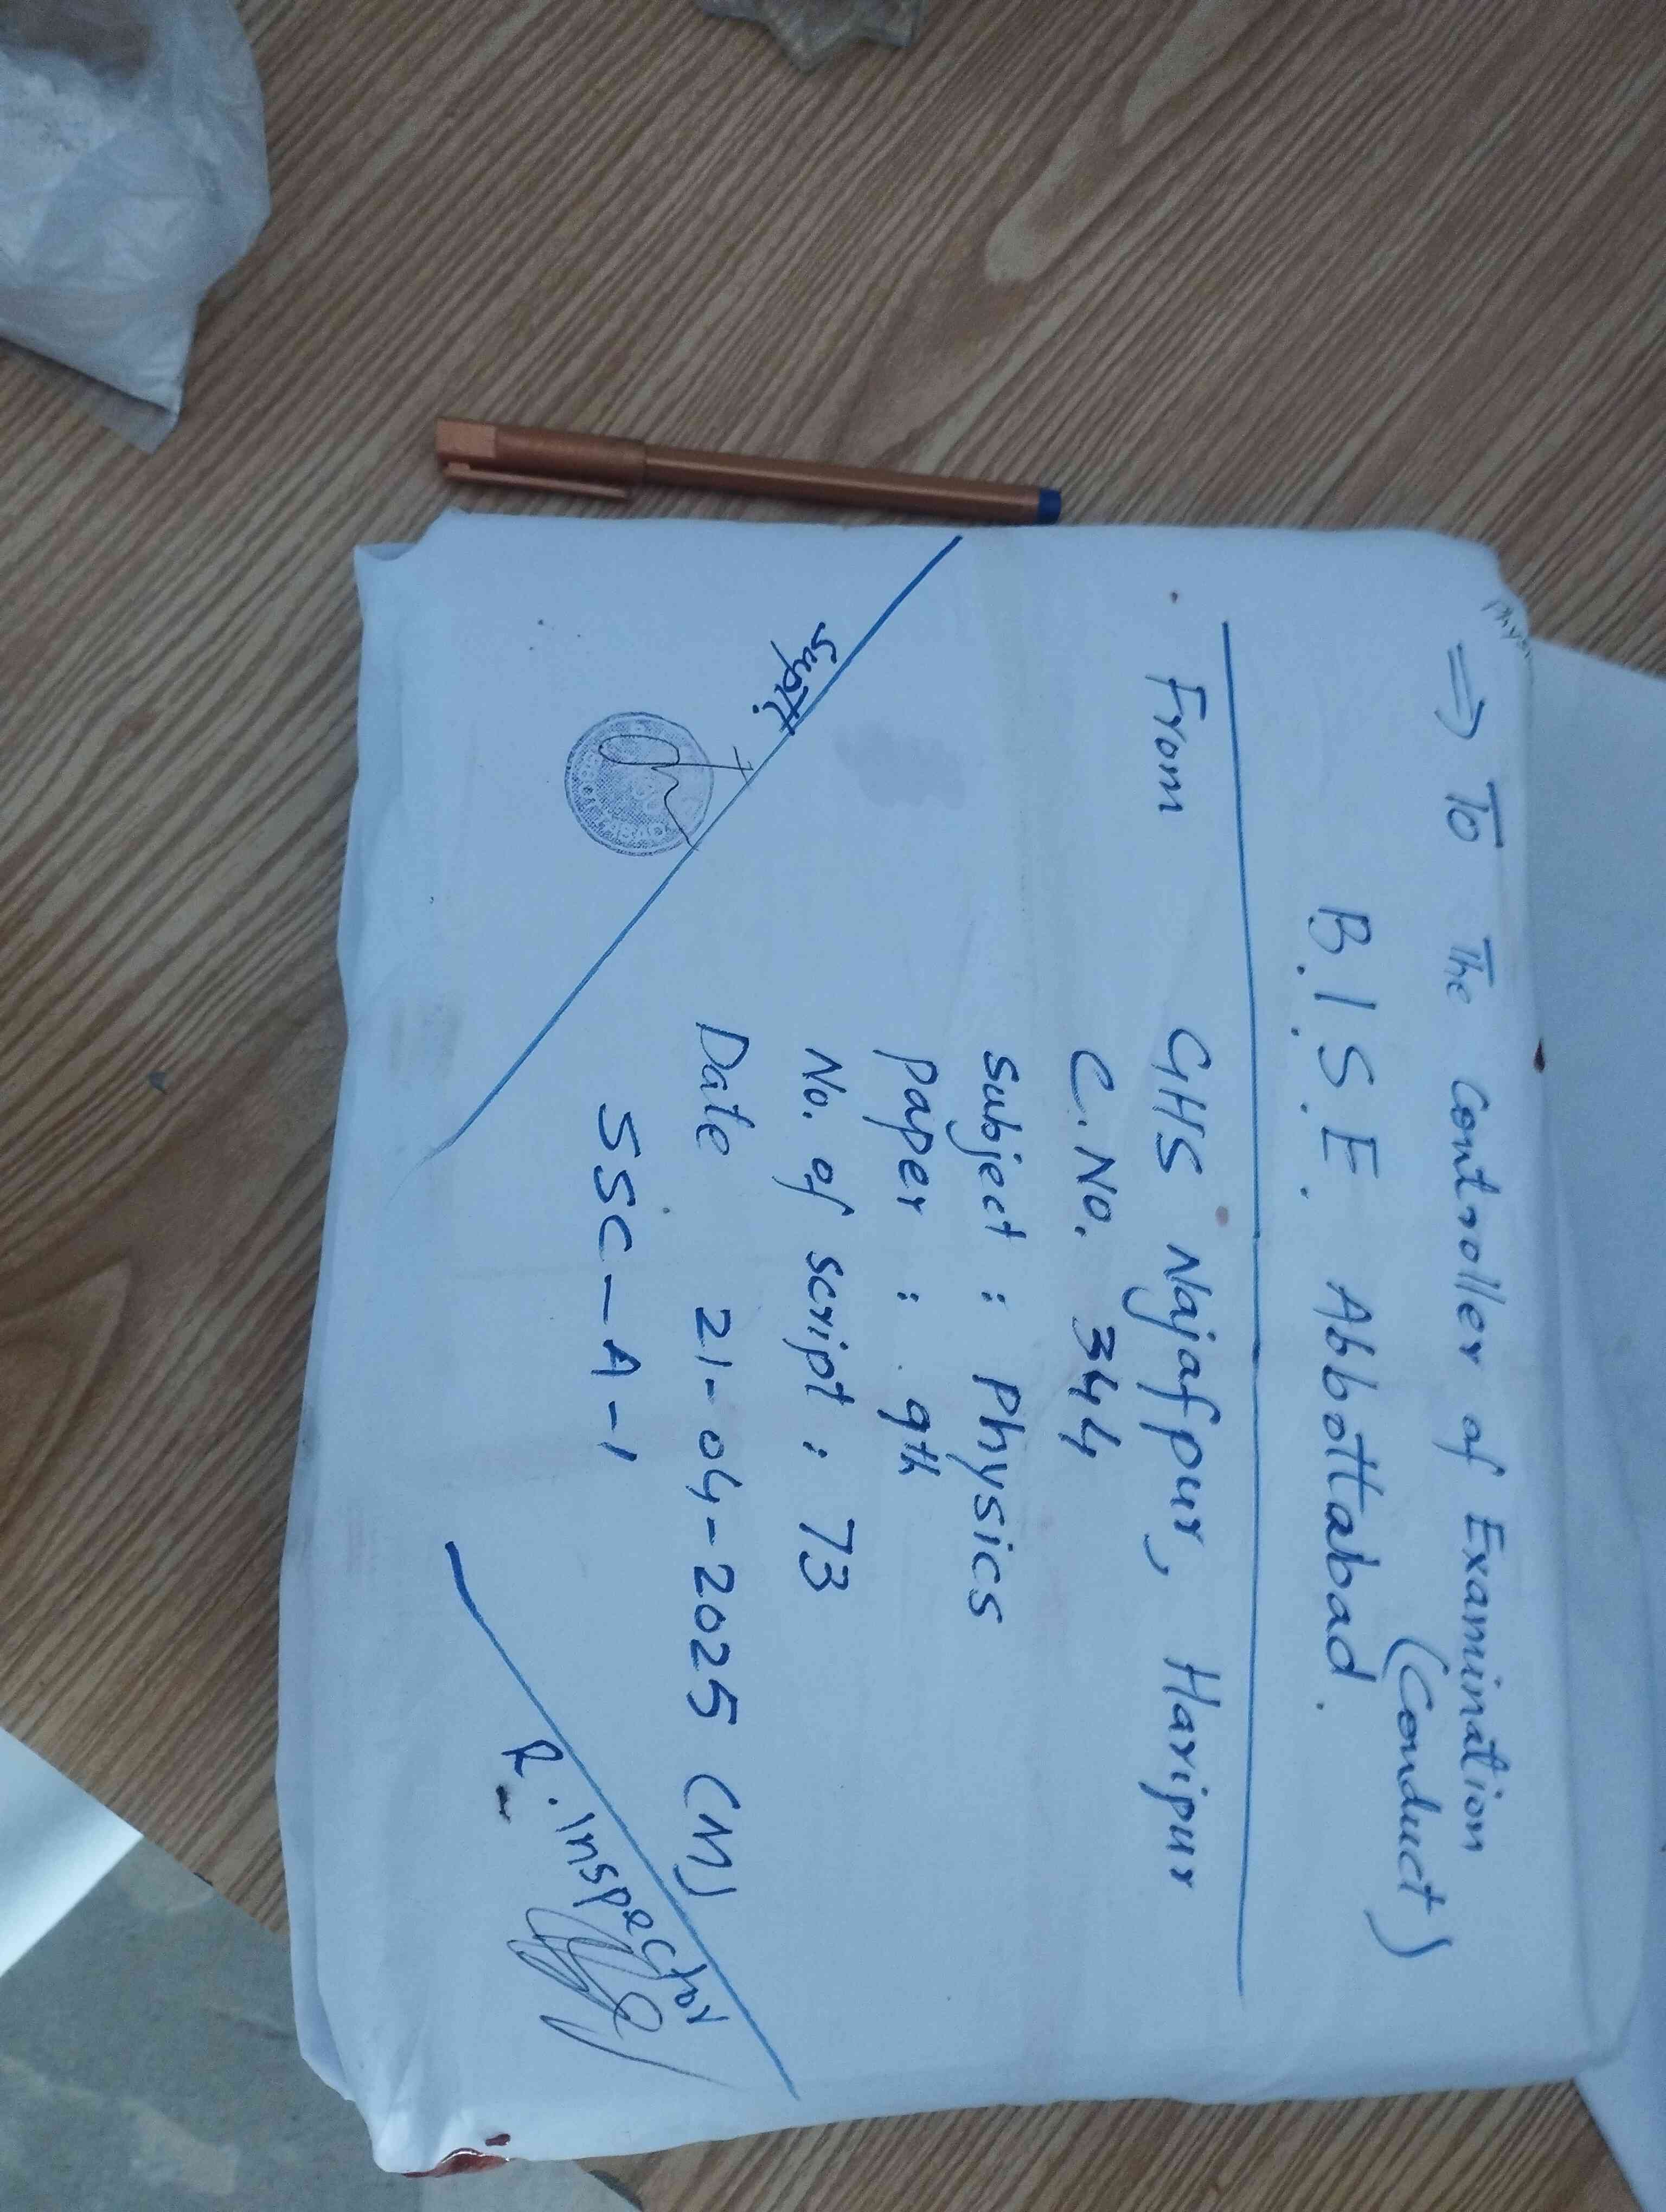 ⇒ To The Controller of Examination
(Conduct)
B.I.S.E. Abbottabad.
From GHS Najafpur, Haripur
C.No. 344
Subject : Physics
Paper : 9th
No. of script : 73
Date 21-04-2025 (M)
SSC-A-1
Suptt:
R. Inspector